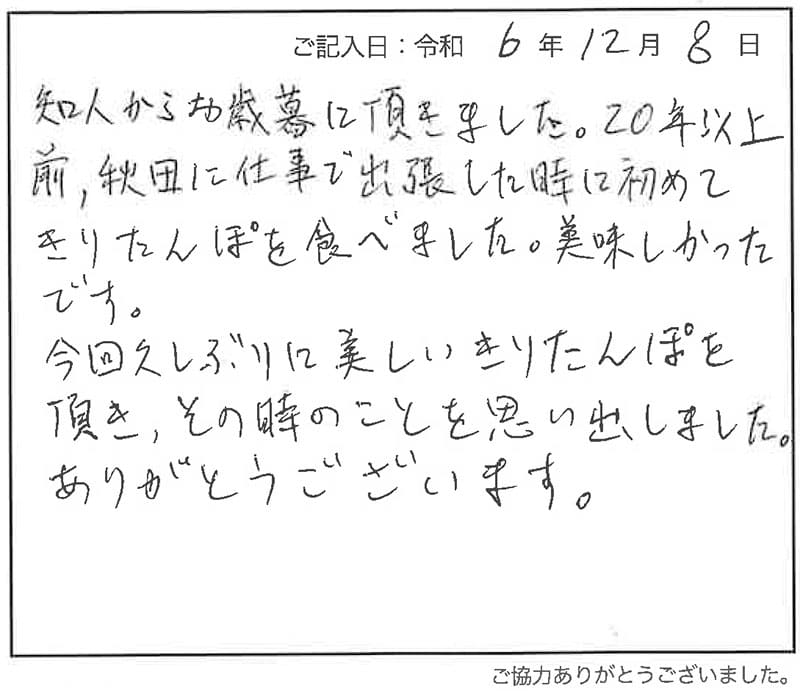 ご記入日：令和 6 年 12 月 8 日
知人からお歳暮に頂きました。20年以上
前,秋田に仕事で出張した時に初めて
きりたんぽを食べました。美味しかった
です。
今回久しぶりに美しいきりたんぽを
頂き,その時のことを思い出しました。
ありがとうございます。
ご協力ありがとうございました。